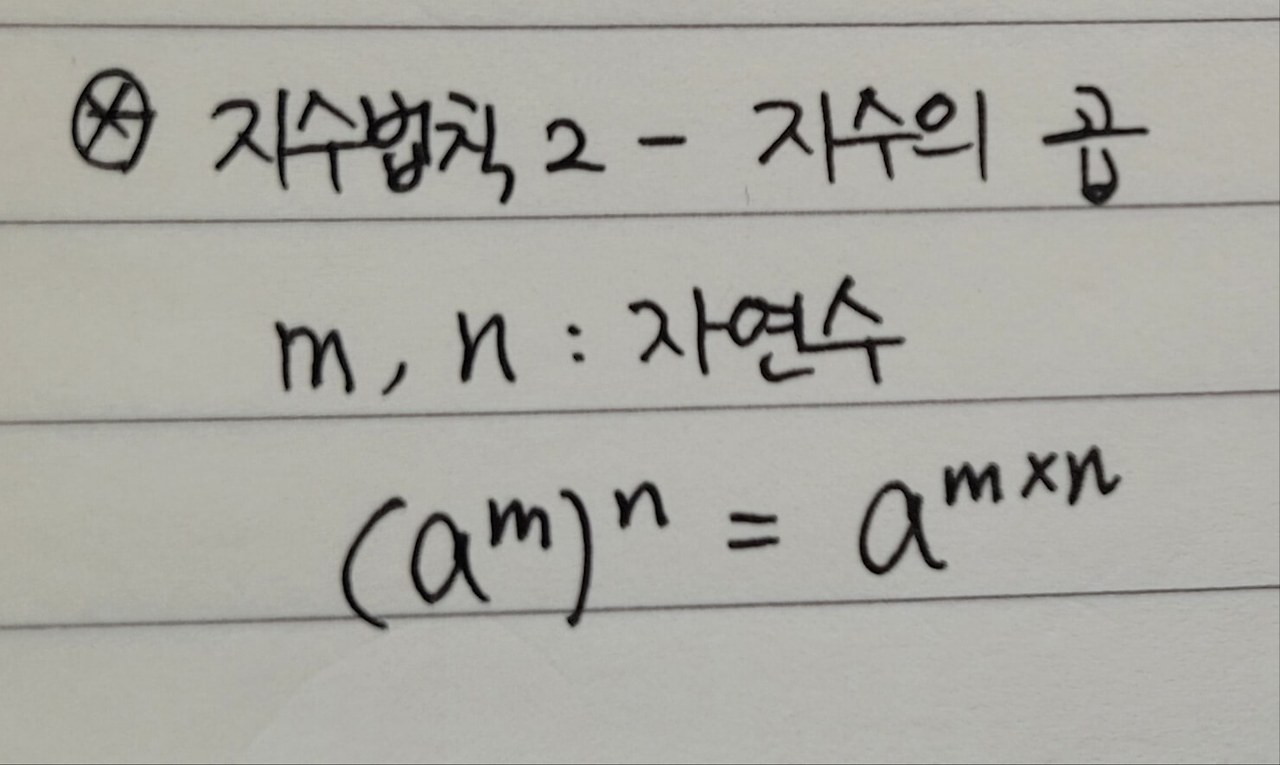 ⊛ 지수법칙 2 - 지수의 곱
m, n : 자연수
(a^m)^n = a^{m×n}